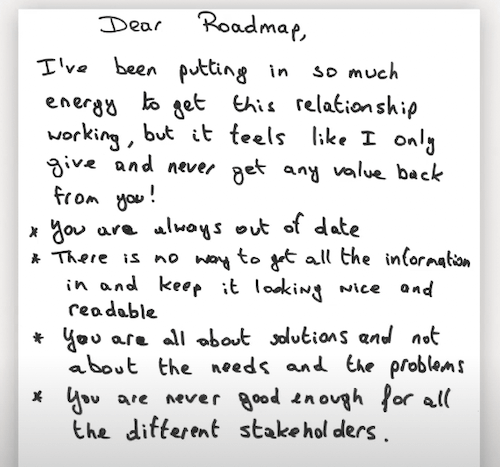 Dear Roadmap,
I've been putting in so much
energy to get this relationship
working, but it feels like I only
give and never get any value back
from you!
* You are always out of date
* There is no way to get all the information
in and keep it looking nice and
readable
* You are all about solutions and not
about the needs and the problems
* You are never good enough for all
the different stakeholders.